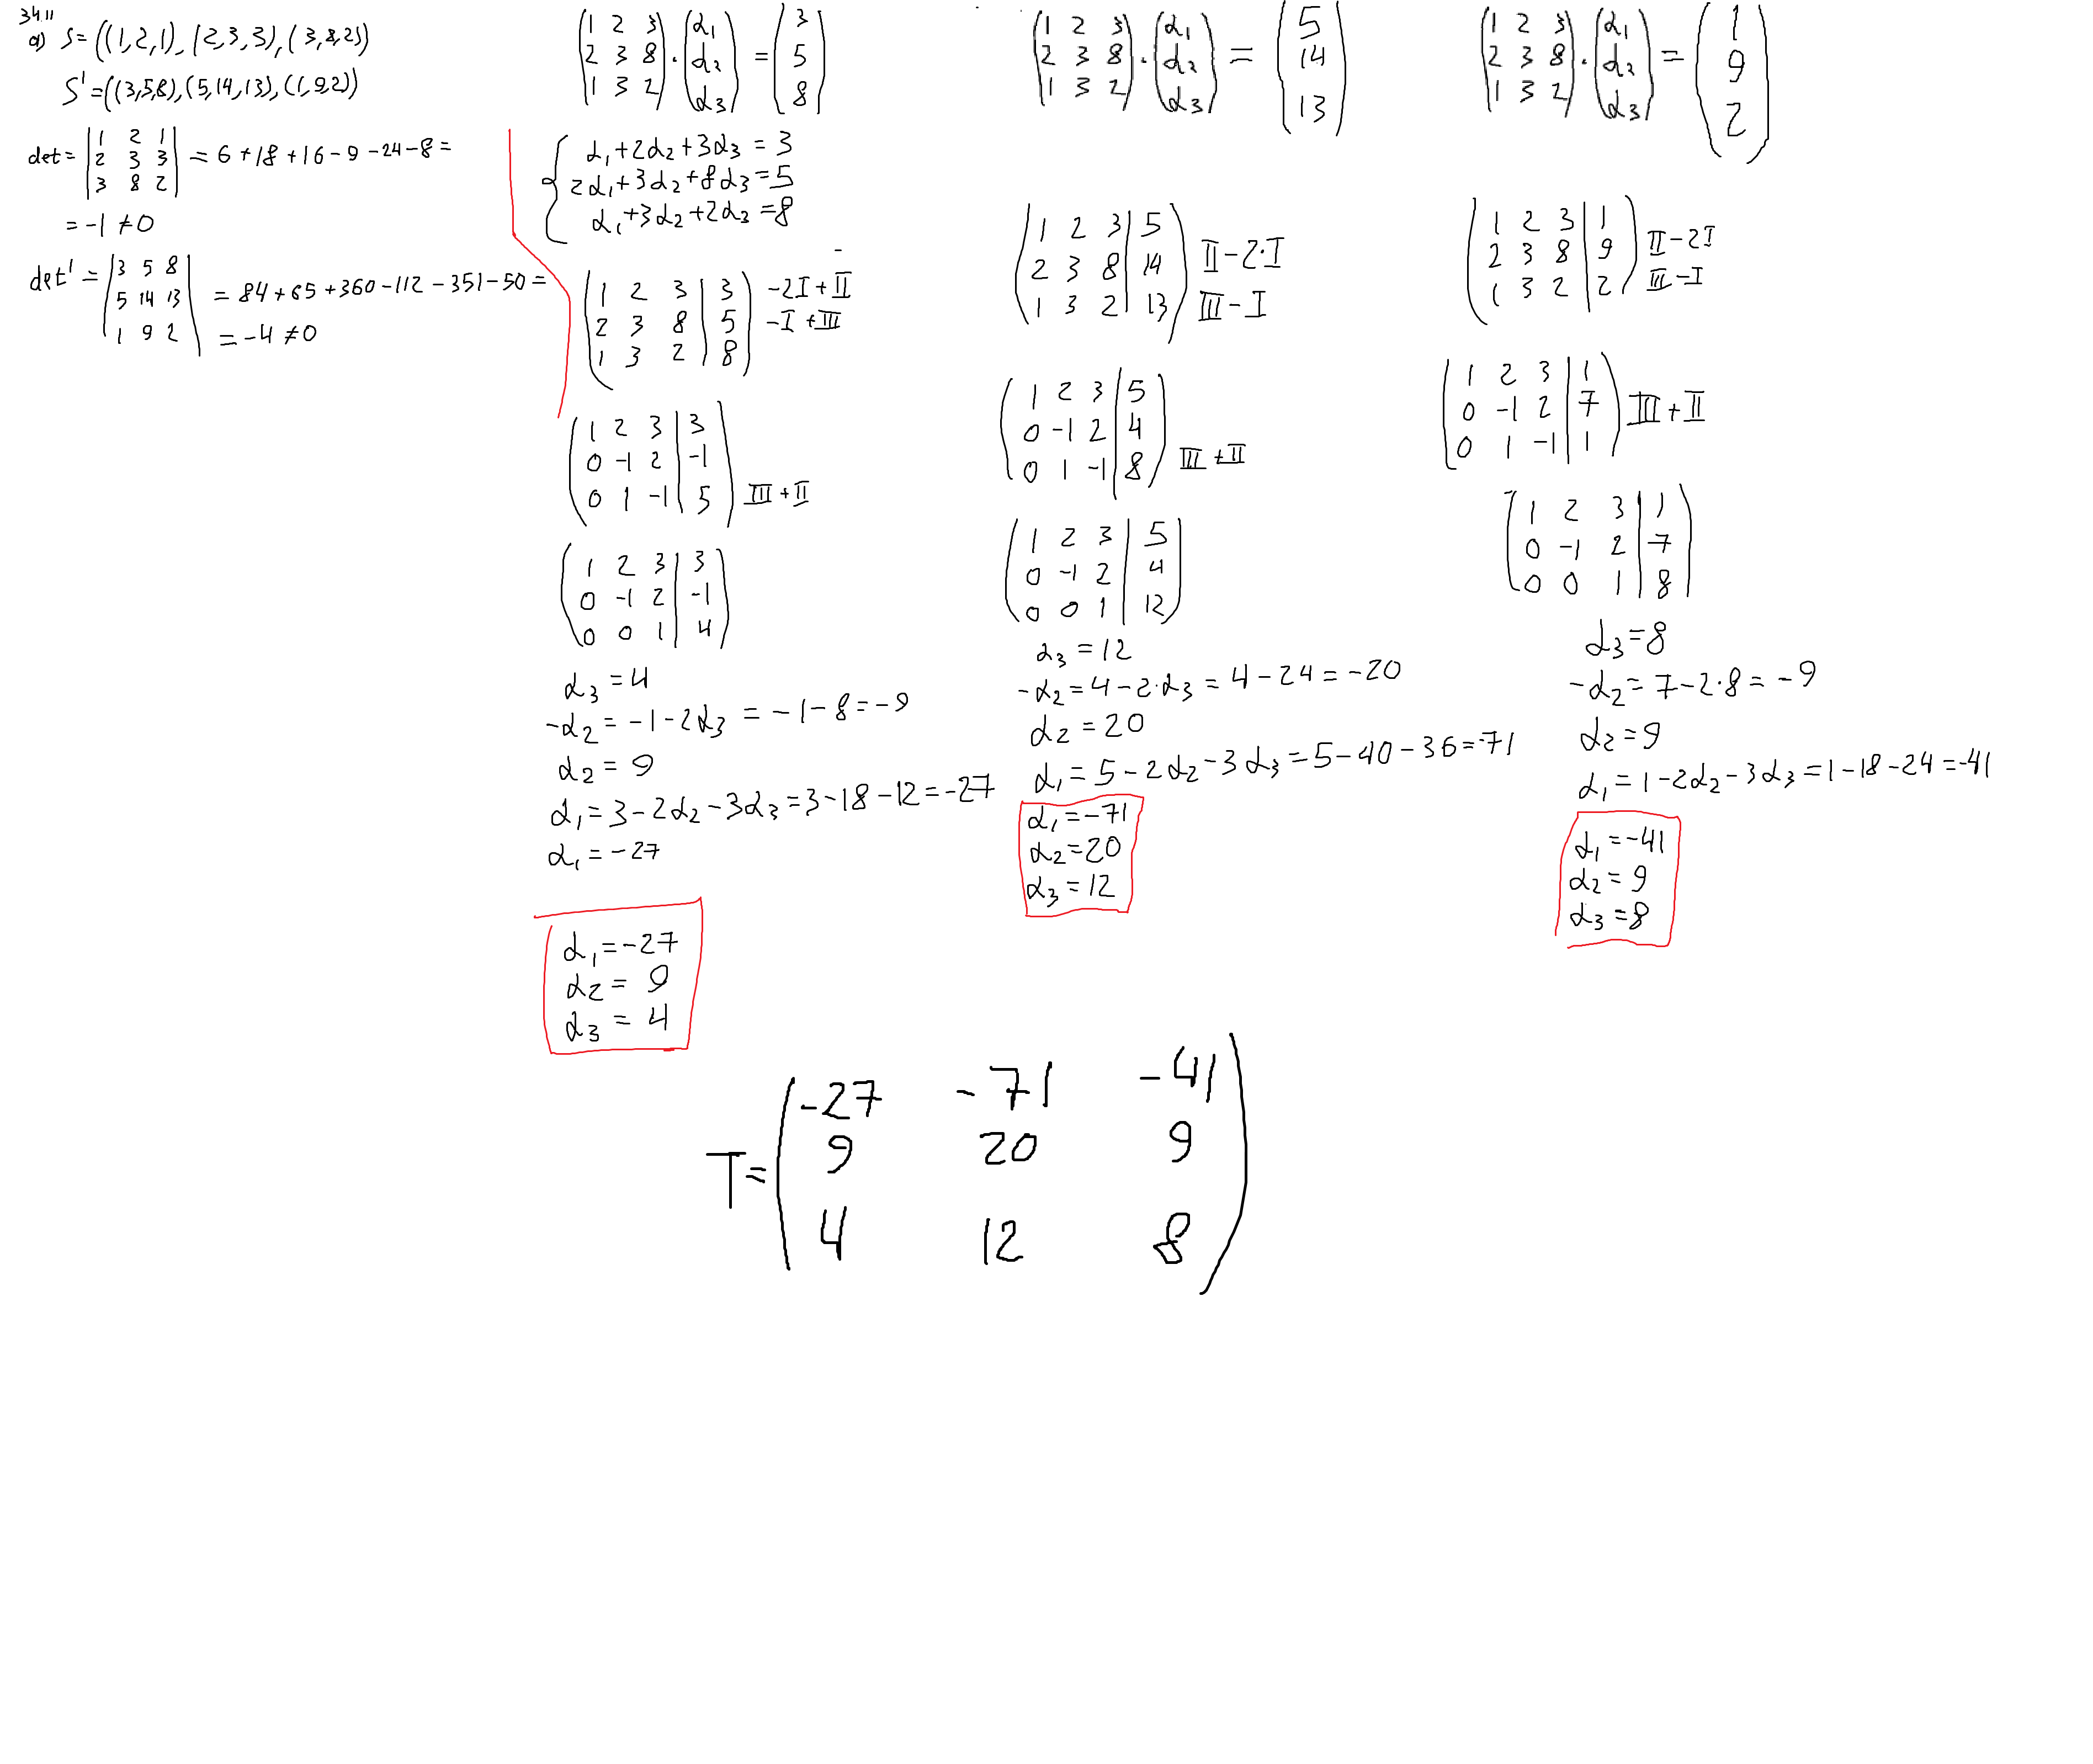 34.11
a) S = ((1,2,1), (2,3,3), (3,8,2))
S' = ((3,5,8), (5,14,13), (1,9,2))
det = |1 2 1|
|2 3 3| = 6 + 18 + 16 - 9 - 24 - 8 =
|3 8 2|
= -1 ≠ 0
det' = |3 5 8|
|5 14 13| = 84 + 65 + 360 - 112 - 351 - 50 =
|1 9 2| = -4 ≠ 0
(1 2 3) (α₁) (3)
(2 3 8) · (α₂) = (5)
(1 3 2) (α₃) (8)
{ α₁ + 2α₂ + 3α₃ = 3
2α₁ + 3α₂ + 8α₃ = 5
α₁ + 3α₂ + 2α₃ = 8
(1 2 3 | 3) -2I + II
(2 3 8 | 5) -I + III
(1 3 2 | 8)
(1 2 3 | 3)
(0 -1 2 | -1)
(0 1 -1 | 5) III + II
(1 2 3 | 3)
(0 -1 2 | -1)
(0 0 1 | 4)
α₃ = 4
-α₂ = -1 - 2α₃ = -1 - 8 = -9
α₂ = 9
α₁ = 3 - 2α₂ - 3α₃ = 3 - 18 - 12 = -27
α₁ = -27
α₁ = -27
α₂ = 9
α₃ = 4
(1 2 3) (α₁) (5)
(2 3 8) · (α₂) = (14)
(1 3 2) (α₃) (13)
(1 2 3 | 5)
(2 3 8 | 14) II - 2·I
(1 3 2 | 13) III - I
(1 2 3 | 5)
(0 -1 2 | 4)
(0 1 -1 | 8) III + II
(1 2 3 | 5)
(0 -1 2 | 4)
(0 0 1 | 12)
α₃ = 12
-α₂ = 4 - 2·α₃ = 4 - 24 = -20
α₂ = 20
α₁ = 5 - 2α₂ - 3α₃ = 5 - 40 - 36 = -71
α₁ = -71
α₂ = 20
α₃ = 12
(1 2 3) (α₁) (1)
(2 3 8) · (α₂) = (9)
(1 3 2) (α₃) (2)
(1 2 3 | 1) II - 2I
(2 3 8 | 9) III - I
(1 3 2 | 2)
(1 2 3 | 1)
(0 -1 2 | 7) III + II
(0 1 -1 | 1)
(1 2 3 | 1)
(0 -1 2 | 7)
(0 0 1 | 8)
α₃ = 8
-α₂ = 7 - 2·8 = -9
α₂ = 9
α₁ = 1 - 2α₂ - 3α₃ = 1 - 18 - 24 = -41
α₁ = -41
α₂ = 9
α₃ = 8
(-27 -71 -41)
T = (9 20 9)
(4 12 8)